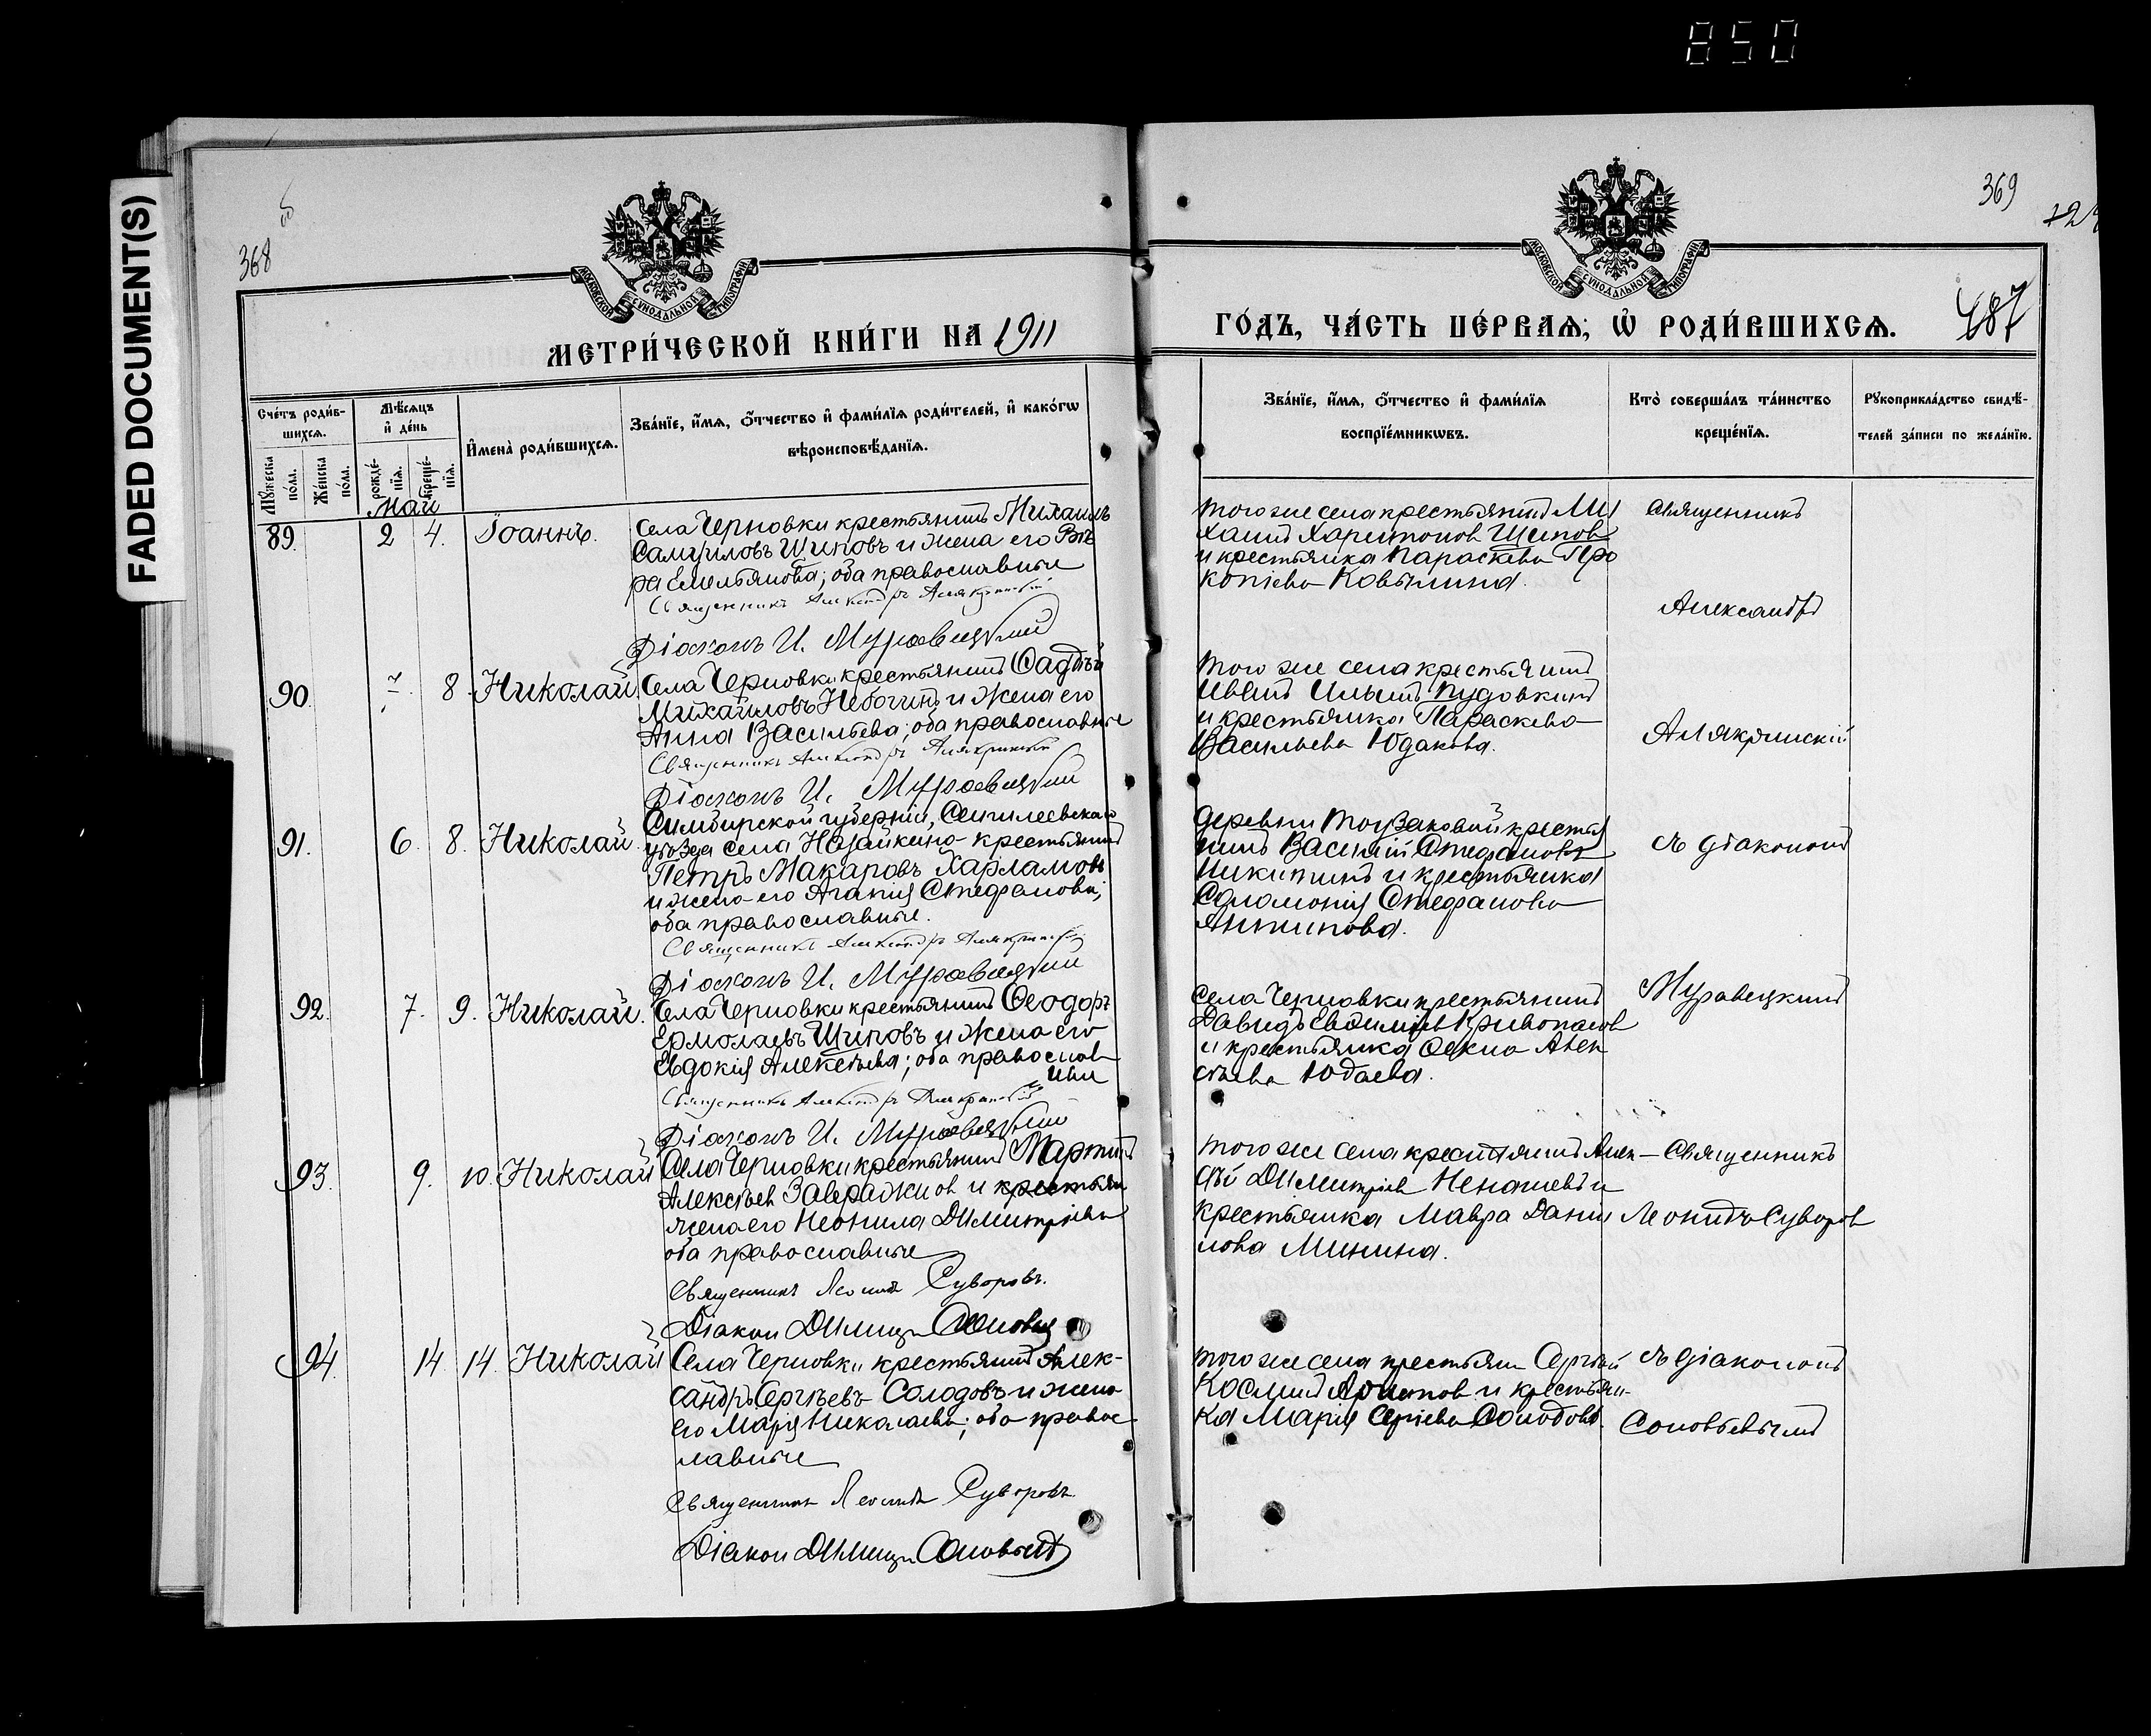 850
FADED DOCUMENT(S)
368
МОСКОВСКОЙ СУНОДАЛЬНОЙ ТИПОГРАФІИ
МЕТРИ́ЧЕСКОЙ КНИ́ГИ НА 1911
Сче́тъ роди́в-
шихсѧ.
Мѣ́сѧцъ
и҆ де́нь
И҆мена̀ роди́вшихсѧ.
Зва́нїе, и҆́мѧ, ѻ҆́тчество и҆ фами́лїѧ роди́телей, и҆ како́гѡ
вѣроисповѣ́данїѧ.
Мꙋ́жеска по́ла.
Же́нска по́ла.
рожде́-нїѧ.
креще́-нїѧ.
Май
89. 2 4. Іоаннъ.
Села Черновки крестьянинъ Михаилъ
Самуиловъ Щиповъ и жена его Вѣ
ра Емельянова; оба православные
Священникъ Александръ Алякринскій
Діаконъ И. Муравецкій
90. 7. 8 Николай
Села Черновки крестьянинъ Фаддѣй
Михайловъ Небогинъ и жена его
Анна Васильева; оба православные
Священникъ Александръ Алякринскій
Діаконъ И. Муравецкій
91. 6. 8. Николай
Симбирской губерніи, Сенгилеевскаго
уѣзда села Назайкино крестьянинъ
Петръ Макаровъ Харламовъ
и жена его Агапія Стефанова;
оба православные.
Священникъ Александръ Алякринскій
Діаконъ И. Муравецкій
92. 7. 9. Николай.
Села Черновки крестьянинъ Ѳеодоръ
Ермолаевъ Щиповъ и жена его
Евдокія Алексѣева; оба православ
ные
Священникъ Александръ Алякринскій
Діаконъ И. Муравецкій
93. 9. 10. Николай
Села Черновки крестьянинъ Мартинъ
Алексѣев Завражнов и крестьян
жена его Неонила Димитріева
оба православные
Священникъ Леонидъ Суворовъ.
Діакон Димитр Соловьев
94. 14 14. Николай
Села Черновки крестьянинъ Алек-
сандръ Сергѣевъ Солодовъ и жена
его Марія Николаева; оба правос
лавные
Священник Леонидъ Суворовъ
Діакон Димитр Соловьевъ
369
487
МОСКОВСКОЙ СУНОДАЛЬНОЙ ТИПОГРАФІИ
ГО́ДЪ, ЧА́СТЬ ПЕ́РВАѦ; Ѡ҆ РОДИ́ВШИХСѦ.
Зва́нїе, и҆́мѧ, ѻ҆́тчество и҆ фами́лїѧ
воспрїе́мникѡвъ.
Кто̀ соверша́лъ та́инство
креще́нїѧ.
Рꙋкоприкла́дство свидѣ́-
телей за́писи по жела́нїю.
того же села крестьянинъ Ми
хаилъ Харитонов Щипов
и крестьянка Параскева Про
копіева Ковылина.
Священникъ
Александръ
того же села крестьянинъ
Иванъ Ильинъ Пудовкинъ
и крестьянка Параскева
Васильева Юдакова.
Алякринскій
деревни крестья
нинъ Василій Стефановъ
Никитинъ и крестьянка
Соломонія Стефанова
Антипова.
съ діакономъ
Села Черновки крестьянинъ
Давидъ Евѳиміев Кривопалов
и крестьянка Ѳекла Алек
сѣева Юдаева.
Муравецкимъ
того же села крестьянинъ Алек
сѣй Димитріев Ненашевъ и
крестьянка Мавра Дани
лова Минина.
Священникъ
Леонидъ Суворов
того же села крестьян Сергѣй
Косминъ Архипов и крестьян-
ка Марія Сергіева Солодова.
съ діакономъ
Соловьевымъ